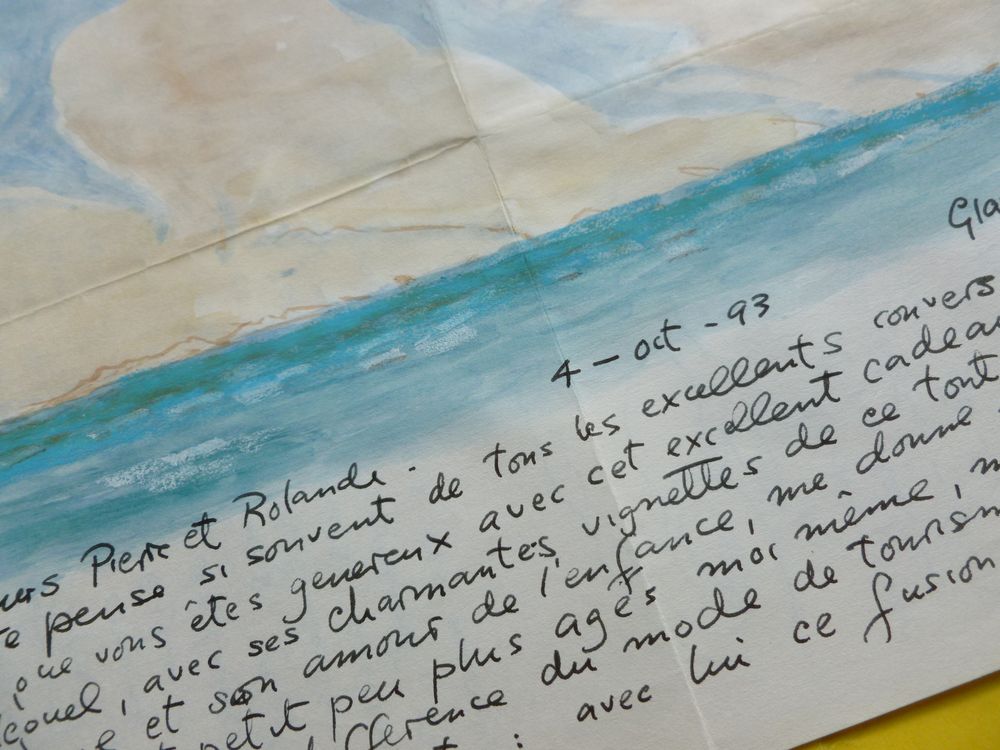 Gla
4 - oct - 93
Pierre et Rolande.
pense si souvent de tous les excellents convers
que vous êtes genereux avec cet excellent cadeau
, avec ses charmantes vignettes de ce tout
et son amour de l'enfance, me donne
petit peu plus agés moi même,
du mode de tourism
: avec lui ce fusion